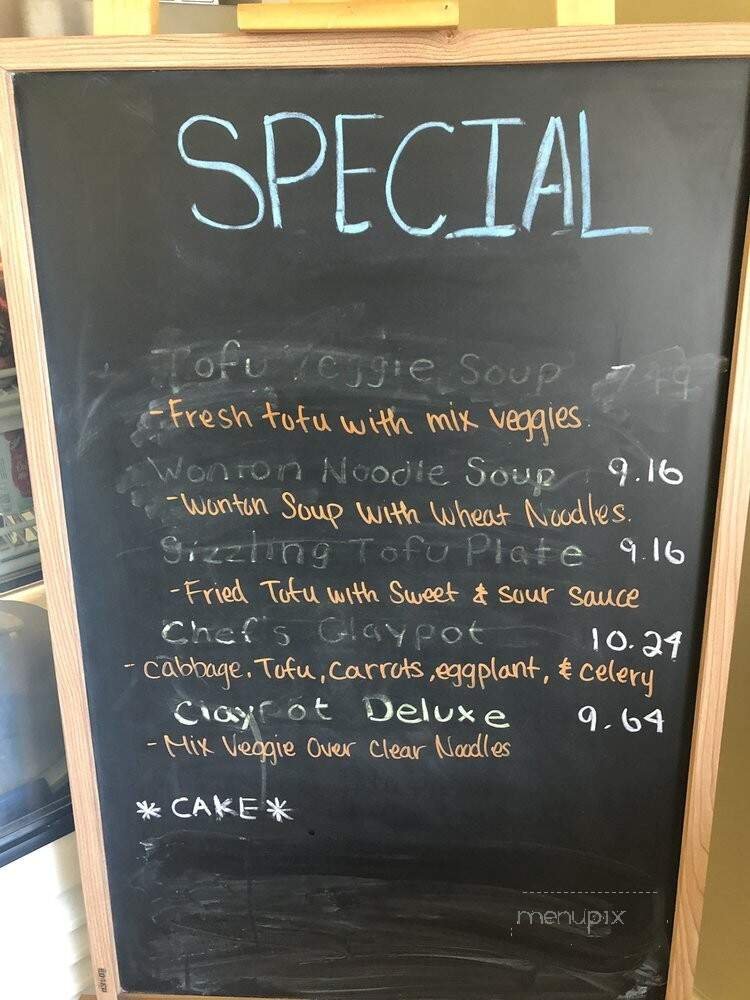 SPECIAL
Tofu Veggie Soup 7.49
-Fresh tofu with mix veggies.
Wonton Noodle Soup 9.16
-Wonton Soup with Wheat Noodles.
Sizzling Tofu Plate 9.16
-Fried Tofu with Sweet & sour sauce
Chef's Claypot 10.24
- Cabbage, Tofu, Carrots, eggplant, & celery
Claypot Deluxe 9.64
- Mix Veggie Over Clear Noodles
* CAKE *
menupix